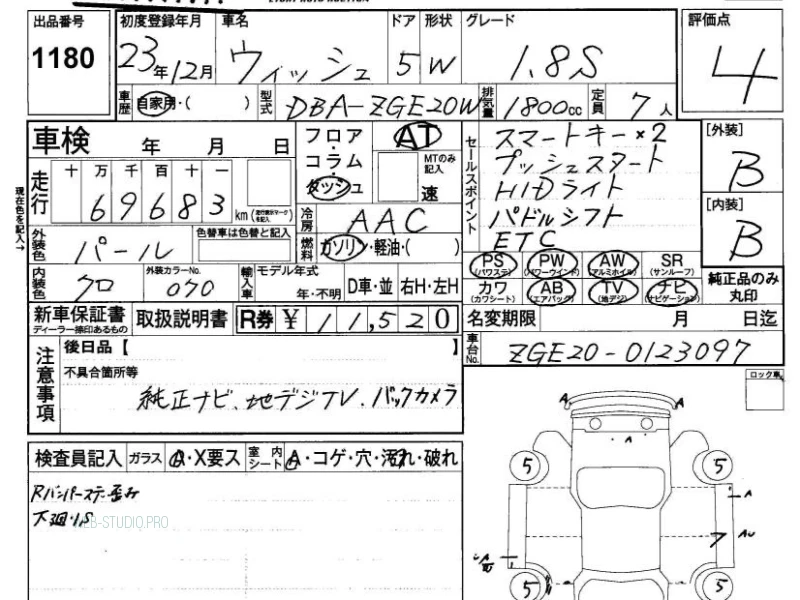 出品番号 初度登録年月 車名 ドア 形状 グレード 評価点
1180 23年12月 ウィッシュ 5 W 1.8S 4
車歴 自家用・( ) 型式 DBA-ZGE20W 排気量 1800cc 定員 7人
車検 年 月 日
フロア・コラム・ダッシュ AT MTのみ記入 速
セールスポイント
スマートキー×2
プッシュスタート
HIDライト
パドルシフト
ETC
[外装]
B
[内装]
B
純正品のみ丸印
現在色を記入→
走行 十 万 千 百 十 一
69683 km
冷房 AAC
外装色 パール 色替車は色替と記入 燃料 ガソリン・軽油・( )
PS (パワステ) PW (パワーウインド) AW (アルミホイル) SR (サンルーフ)
カワ (カワシート) AB (エアバック) TV (地デジ) ナビ (ナビゲーション)
内装色 クロ 外装カラーNo. 070 輸入車 モデル年式 年・不明 D車・並 右H・左H
新車保証書 ディーラー捺印あるもの 取扱説明書 R券 ¥ 11,520
名変期限 月 日迄
車台No. ZGE20-0123097
注意事項
後日品【 】
不具合箇所等
純正ナビ、地デジTV、バックカメラ
ロック車
検査員記入 ガラス A・X要ス 室内シート A・コゲ・穴・汚れ・破れ
Rバンパーステー歪み
下廻りS
WEB-STUDIO.PRO
A A
A
5 5
A
7 AU
5 5